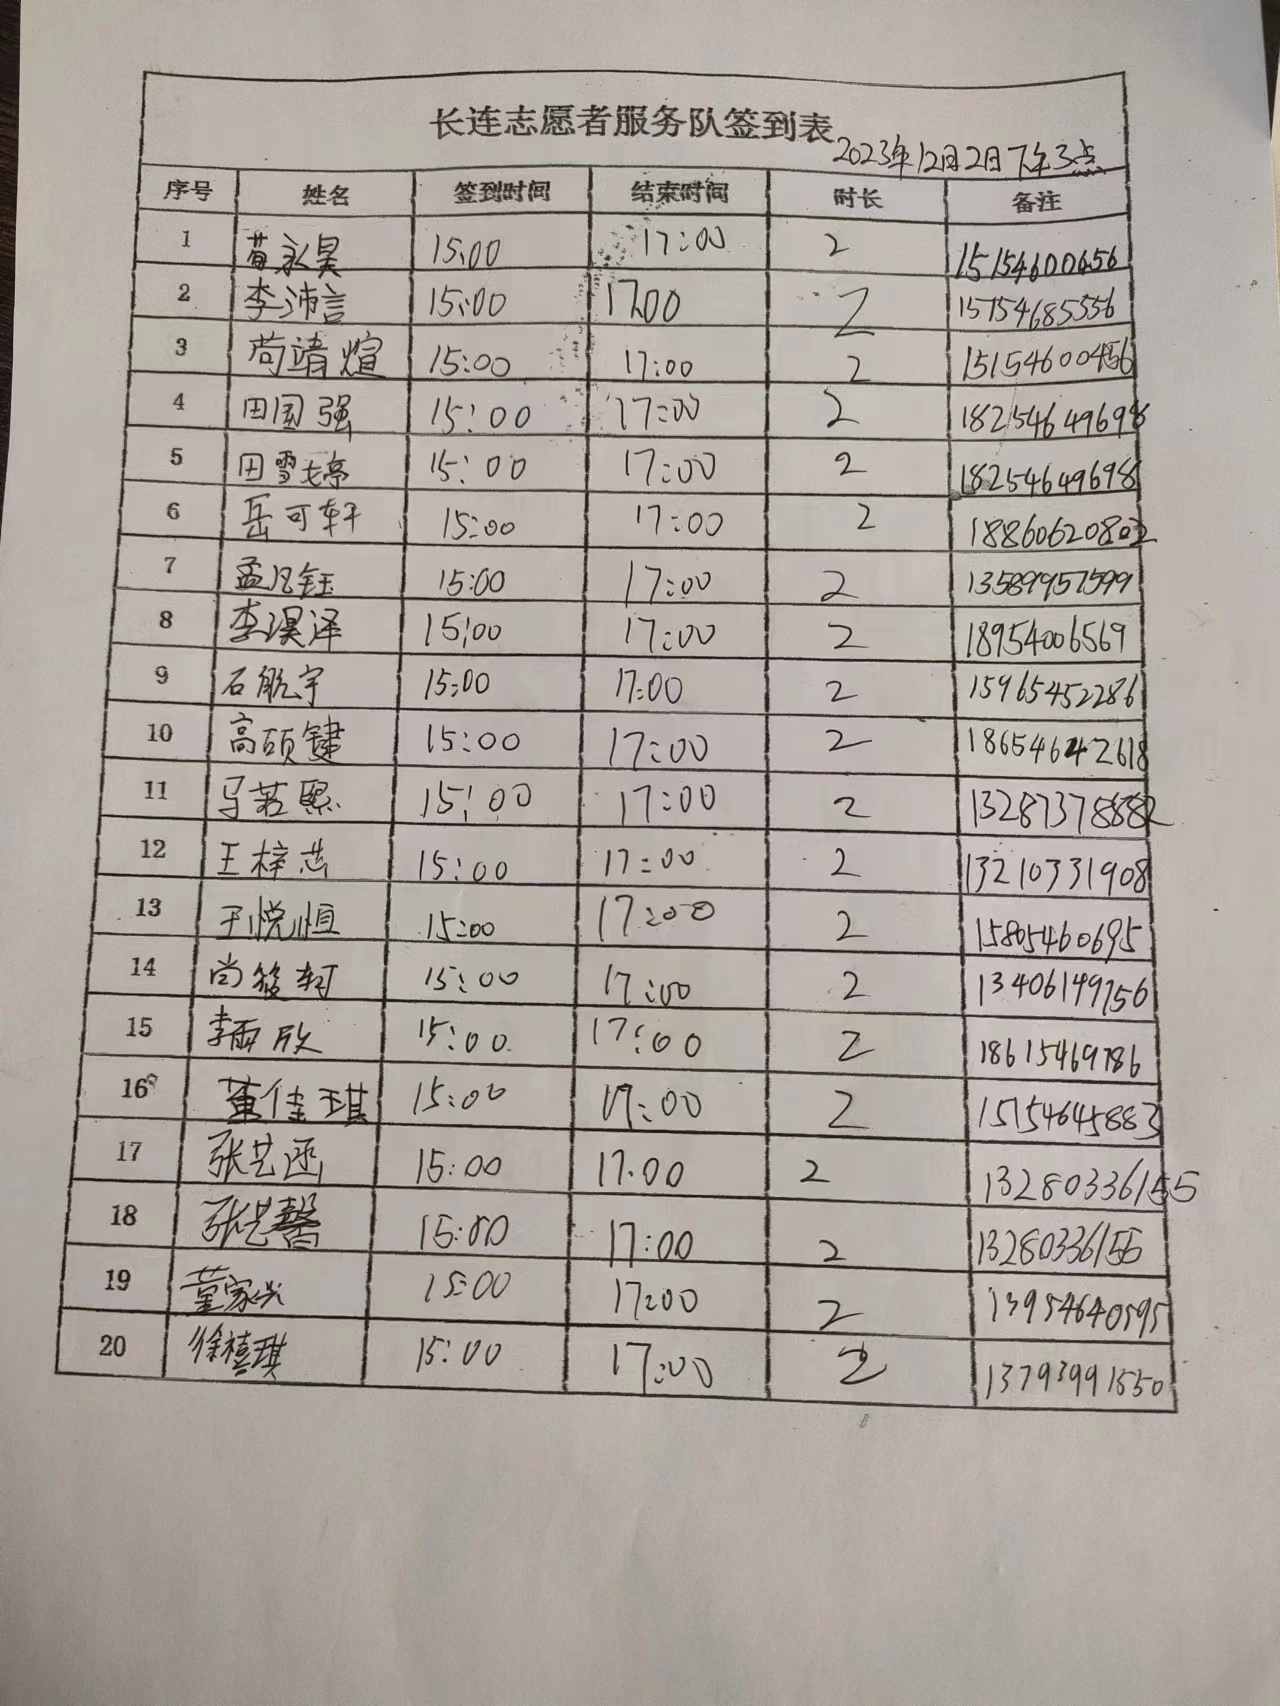 长连志愿者服务队签到表
2023年12月2日下午3点
序号 姓名 签到时间 结束时间 时长 备注
1 苟永昊 15:00 17:00 2 15154600656
2 李沛言 15:00 17:00 2 15754685556
3 苟靖煊 15:00 17:00 2 15154600456
4 田国强 15:00 17:00 2 18254649698
5 田雪婷 15:00 17:00 2 18254649698
6 岳可轩 15:00 17:00 2 18860620802
7 孟凡钰 15:00 17:00 2 13589957599
8 李淏泽 15:00 17:00 2 18954006569
9 石航宇 15:00 17:00 2 15965452286
10 高硕键 15:00 17:00 2 18654642618
11 马若熙 15:00 17:00 2 13287378882
12 王梓芯 15:00 17:00 2 13210331908
13 王悦恒 15:00 17:00 2 15805460695
14 尚筱轲 15:00 17:00 2 13406149756
15 李雨欣 15:00 17:00 2 18615469786
16 董佳琪 15:00 17:00 2 15154645883
17 张艺涵 15:00 17:00 2 13280336155
18 张艺馨 15:00 17:00 2 13280336155
19 董家兴 15:00 17:00 2 13954640595
20 徐禧琪 15:00 17:00 2 13793991550